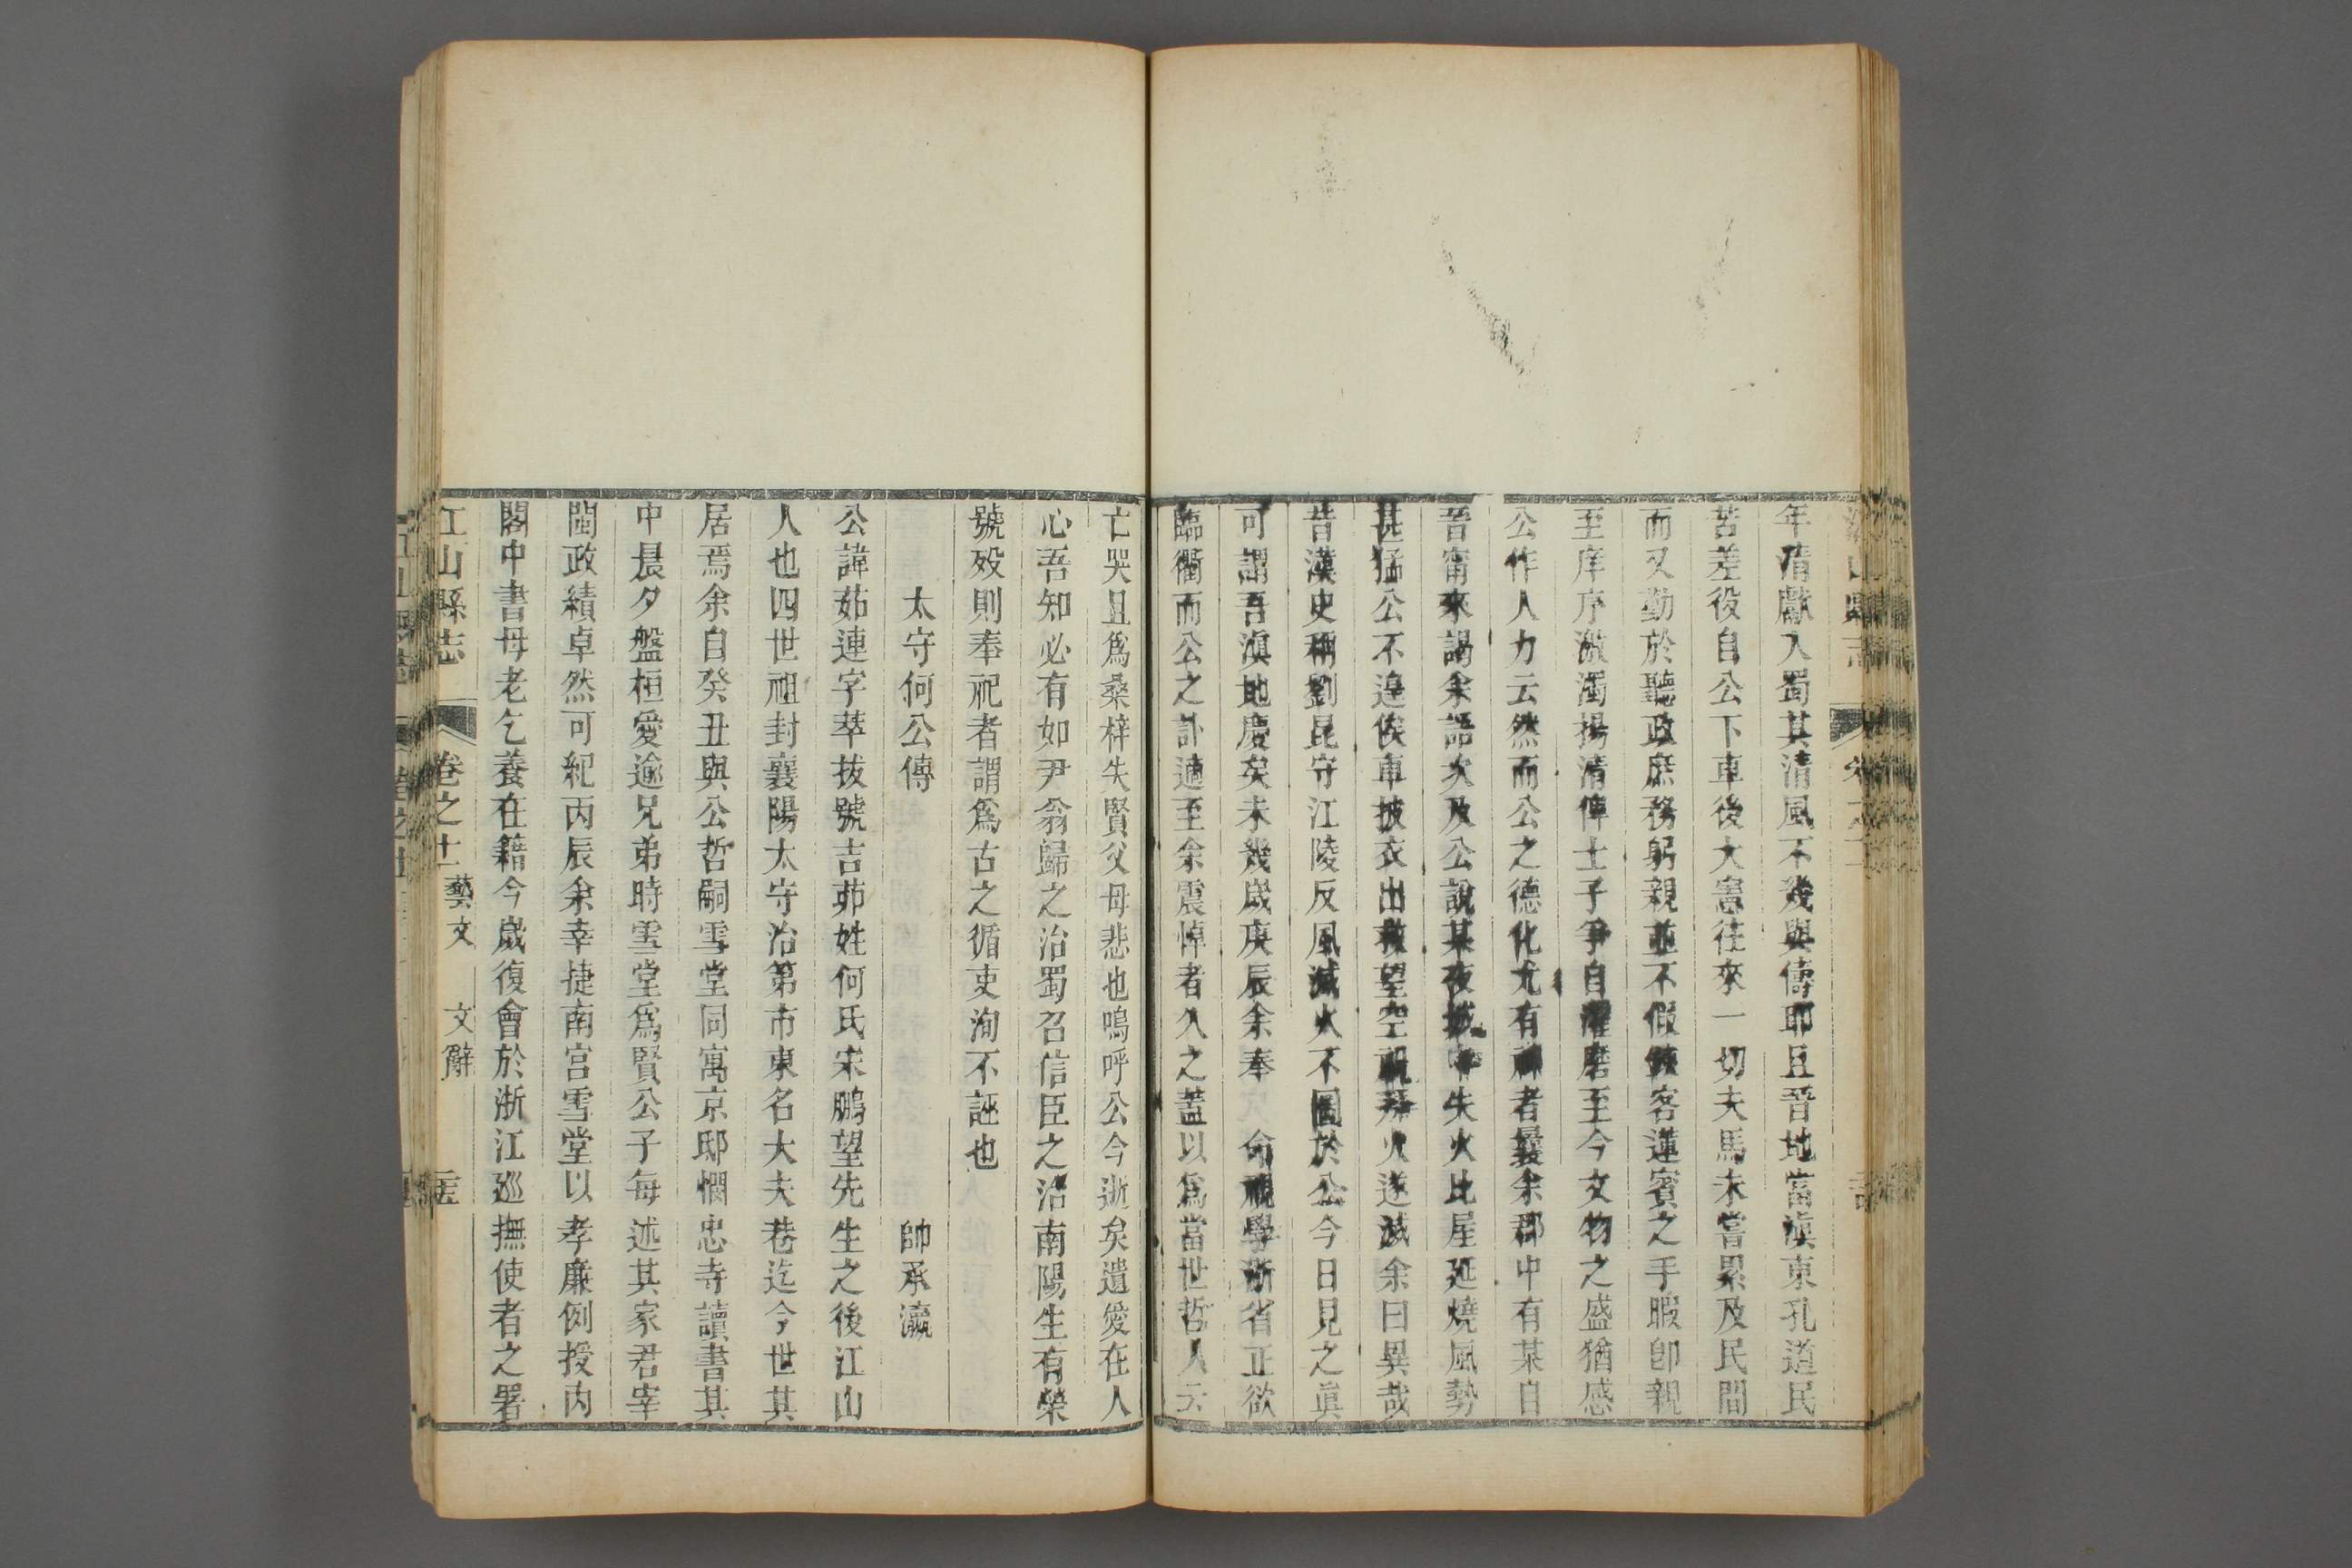 年清獻入蜀其清風不幾與儔耶且晉地當滇東孔道民
苦差役自公下車後大憲往來一切夫馬未嘗累及民間
而又勤於聽政庶務躬親並不假餗客蓮賓之手暇卽親
至庠序激濁揚清俾士子爭自濯磨至今文物之盛猶感
公作人力云然而公之德化尤有神者曩余郡中有某自
晉甯來謁余語次及公說某夜城中失火比屋延燒風勢
甚猛公不遑俟車披衣出救望空視拜火遂滅余曰異哉
昔漢史稱劉昆守江陵反風滅火不圖於公今日見之眞
可謂吾滇地慶矣未幾歲庚辰余奉 命視學浙省正欲
臨衢而公之訃適至余震悼者久之蓋以爲當世哲人云
亡哭且爲桑梓失賢父母悲也嗚呼公今逝矣遺愛在人
心吾知必有如尹翁歸之治蜀召信臣之治南陽生有榮
號歿則奉祀者謂爲古之循吏洵不誣也
太守何公傳 帥承瀛
公諱茹連字萃拔號吉茆姓何氏宋鵬望先生之後江山
人也四世祖封襄陽太守治第市東名大夫巷迄今世其
居焉余自癸丑與公哲嗣雪堂同寓京邸憫忠寺讀書其
中晨夕盤桓愛逾兄弟時雪堂爲賢公子每述其家君宰
閩政績卓然可紀丙辰余幸捷南宮雪堂以孝廉例授內
閣中書母老乞養在籍今歲復會於浙江巡撫使者之署
江山縣志 卷之十一 藝文 文辭